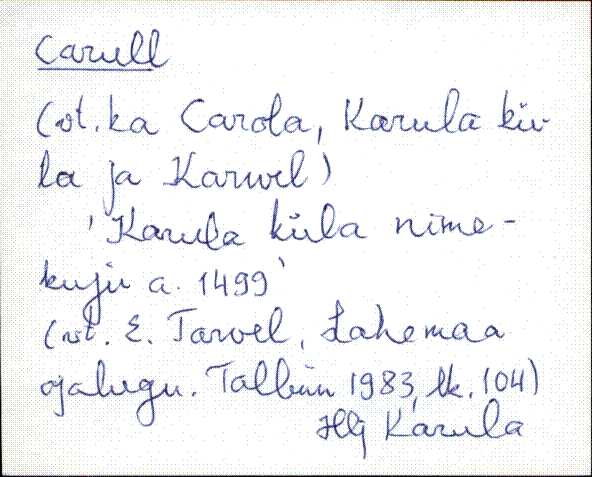 Carull
(vt. ka Carola, Karula kü-
la ja Karwel)
'Karula küla nime-
kuju a. 1499'
(vt. E. Tarvel, Lahemaa
ajalugu. Tallinn 1983, lk. 104)
HlJ Karula